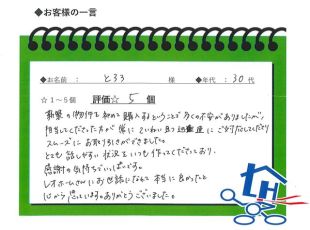 ◆お客様の一言
◆お名前 : とろろ 様 ◆年代 : 30 代
☆1~5個 評価☆ 5 個
新築の物件を初めて購入するということで多くの不安がありましたが、
担当してくださった方が常にていねい且つ迅速にご対応してくださり
スムーズにお取り引きができました。
とても話しやすい状況をいつも作ってくださっており、
感謝の気持ちでいっぱいです。
レオホームさんにお世話になれて本当に良かったと
心から思っています。ありがとうございました。
LH